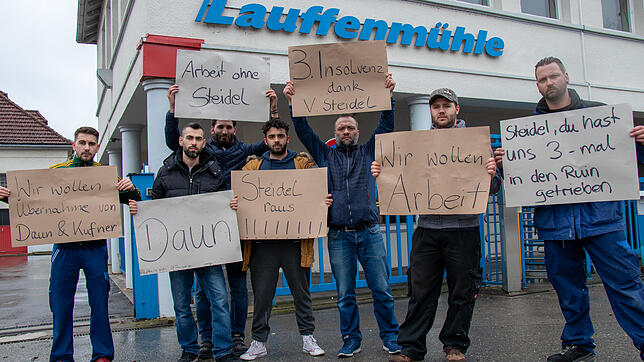 Lauffenmühle
Arbeit ohne
Steidel
3. Insolvenz
dank
V. Steidel
Wir wollen
Übernahme von
Daun & Küfner
Daun
Steidel
raus
!!!!!!!!!!!
Wir wollen
Arbeit
Steidel, du hast
uns 3-mal
in den Ruin
getrieben